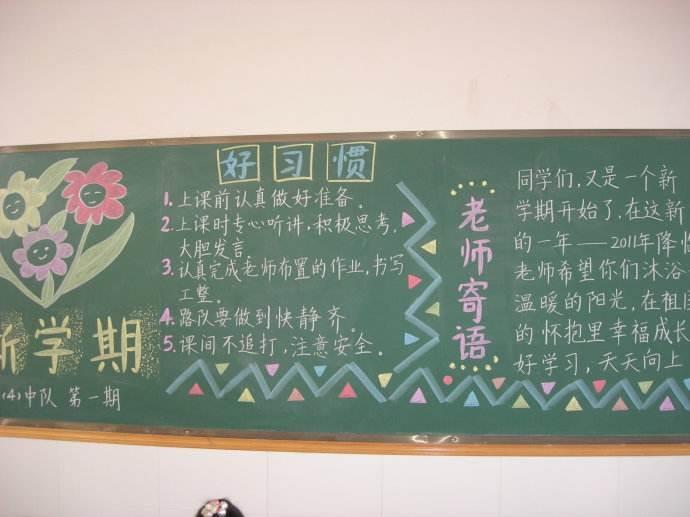 好习惯
1.上课前认真做好准备。
2.上课时专心听讲,积极思考,
大胆发言。
3.认真完成老师布置的作业,书写
工整。
4.路队要做到快静齐。
5.课间不追打,注意安全。
新学期
(4)中队 第一期
老师寄语
同学们,又是一个新
学期开始了,在这新
的一年——2011年降临
老师希望你们沐浴
温暖的阳光,在祖国
的怀抱里幸福成长
好学习,天天向上